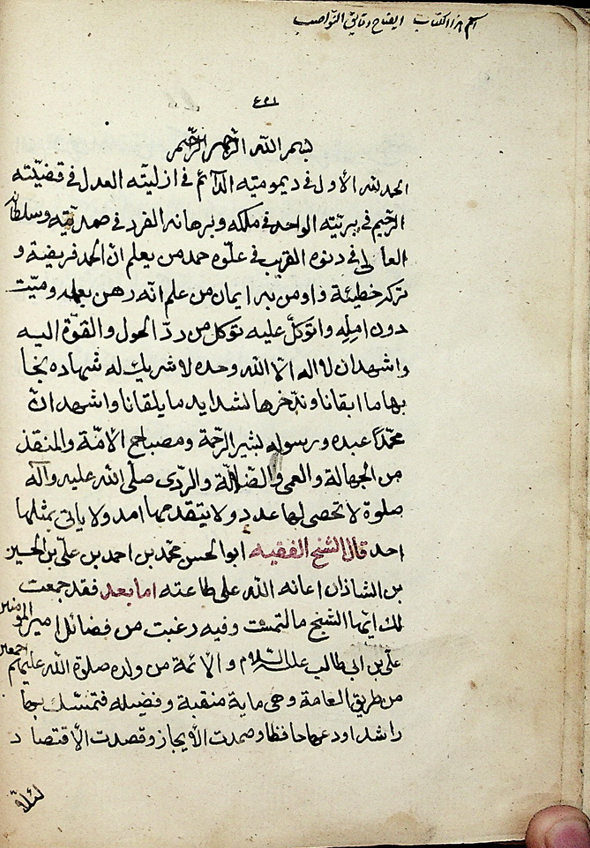 اسم هذا الكتاب ايضاح دفائن النواصب
٤٢١
بسم الله الرحمن الرحيم
الحمد لله الاول فى ديموميته الدائم فى ازليته العدل فى قضيته
الرحيم فى بريته الواحد فى ملكه وبرهانه الفرد فى صمديته وسلطانه
العالى فى دنوه القريب فى علوه حمد من يعلم ان الحمد فريضة و
تركه خطيئة واومن به ايمان من علم انه رهن بعمله وميت
دون امله واتوكل عليه توكل من رد الحول والقوة اليه
واشهد ان لا اله الا الله وحده لا شريك له شهاده نجا
بها ما ابقانا وندخرها لشدايد ما يلقانا واشهد ان
محمدا عبده ورسوله بشير الرحمة ومصباح الامة والمنقذ
من الجهالة والعمى والضلالة والردى صلى الله عليه وآله
صلوة لا تحصى لها عدد ولا يتقدمها امد ولا ياتى بمثلها
احد قال الشيخ الفقيه ابو الحسن محمد بن احمد بن على بن الحسين
بن الشاذان اعانه الله على طاعته اما بعد فقد جمعت
لك ايها الشيخ ما التمست وفيه رغبت من فضائل امير المؤمنين
على بن ابى طالب عليه السلام والائمة من ولده صلوة الله عليهم اجمعين
من طريق العامة وهى ماية منقبة وفضيله فتمسك بها
راشدا وعها حافظا وصمدت الايجاز وقصدت الاقتصاد
لئلا